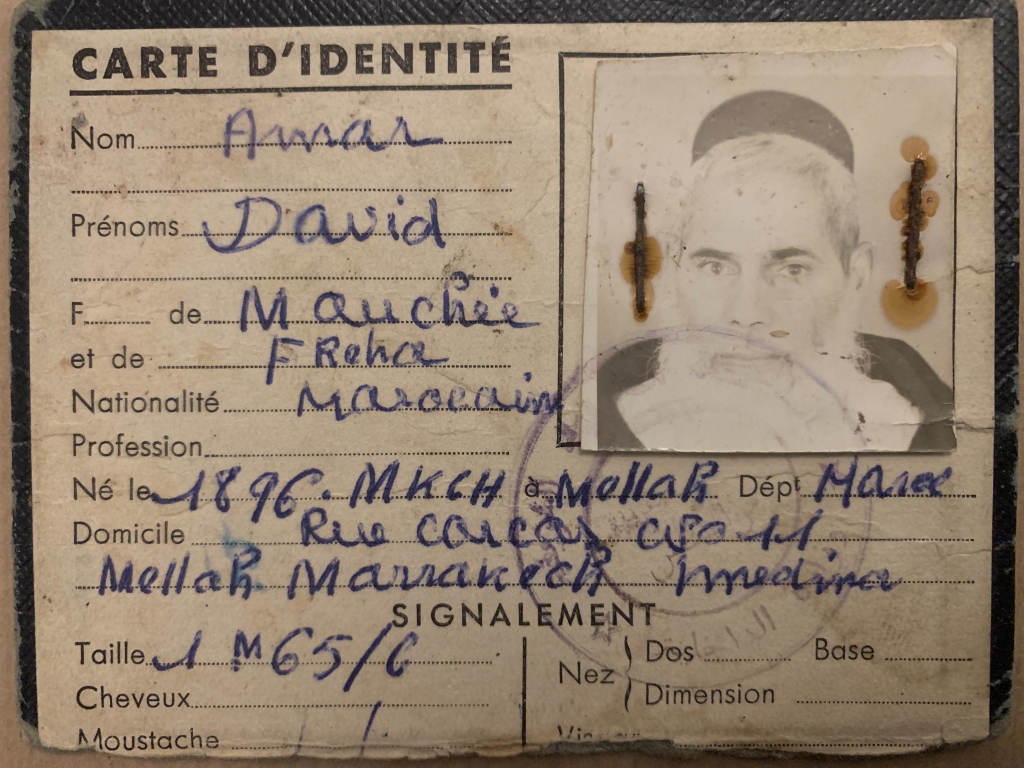 CARTE D'IDENTITÉ
Nom Amar
Prénoms David
F. de Mauchée
et de FReha
Nationalité Marocain
Profession
Né le 1896. MKCH à MellaR Dépt Maroc
Domicile Rue corcos 11
MellaR MarrakecR medina
SIGNALEMENT
Taille 1M65/6
Cheveux
Moustache
Nez Dos Base
Dimension